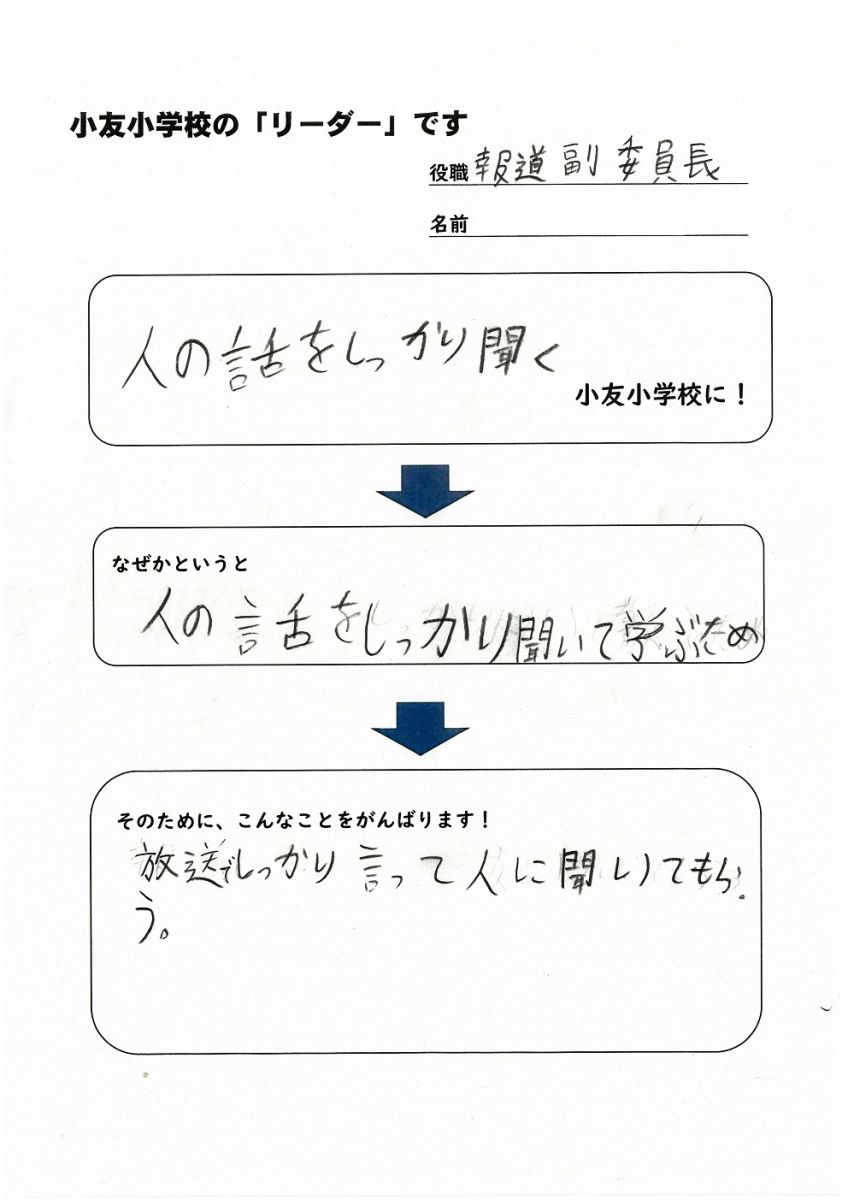 小友小学校の「リーダー」です
役職 報道副委員長
名前
人の話をしっかり聞く
小友小学校に！
なぜかというと
人の話をしっかり聞いて学ぶため
そのために、こんなことをがんばります！
放送でしっかり言って人に聞いてもら
う。